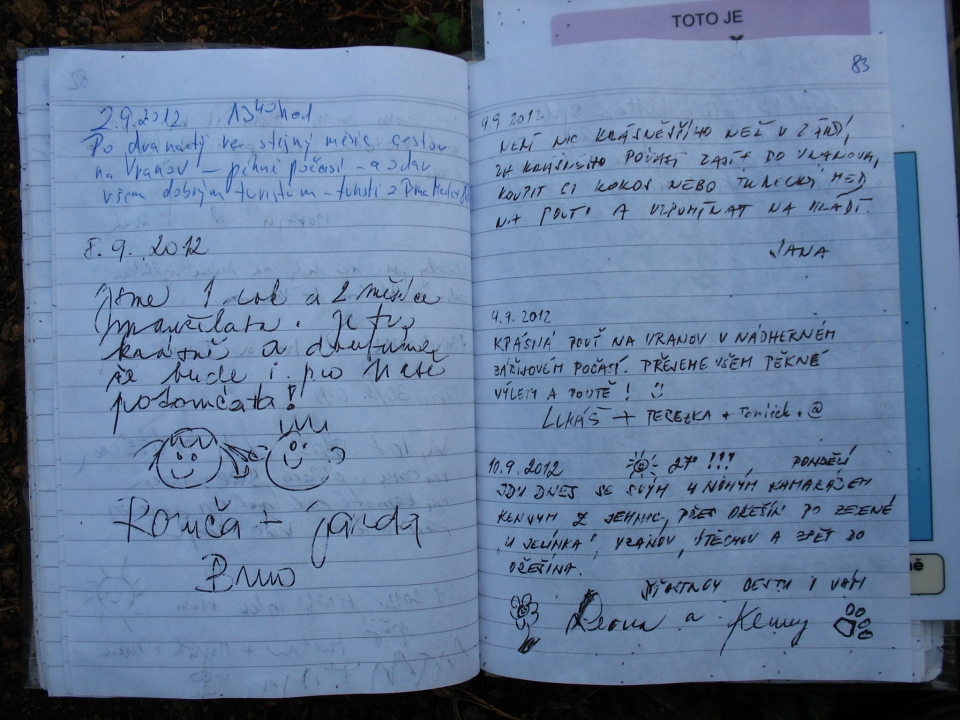 TOTO JE
82
2.9.2012 13⁴⁰ hod
Po dvanáctý ve stejný měsíc cestou
na Vranov – pěkné počasí – a zdar
všem dobrým turistům – turisti z
8. 9. 2012
jsme 1 rok a 2 měsíce
manžílata. Je tu
krásně a doufáme,
že bude i pro naše
potomčata!
Romča + Jarda
Brno
83
9.9.2012
NENÍ NIC KRÁSNĚJŠÍHO NEŽ V ZÁŘÍ,
ZA KRÁSNÉHO POČASÍ ZAJÍT DO VRANOVA,
KOUPIT SI KOKOS NEBO TURECKÝ MED
NA POUTI A VZPOMÍNAT NA MLÁDÍ.
JANA
9.9.2012
KRÁSNÁ POUŤ NA VRANOV V NÁDHERNÉM
ZÁŘIJOVÉM POČASÍ. PŘEJEME VŠEM PĚKNÉ
VÝLETY A POUTĚ!
LUKÁŠ + TEREZKA + Toníček + @
10.9.2012 27° !!! PONDĚLÍ
JDU DNES SE SVÝM 4 NOHÝM KAMARÁDEM
KENNYM Z JEHNIC, PŘES OŘEŠÍN PO ZELENÉ
"U JELÍNKA", VRANOV, ÚTĚCHOV A ZPĚT DO
OŘEŠÍNA.
ŠŤASTNOU CESTU I VÁM
a Kenny